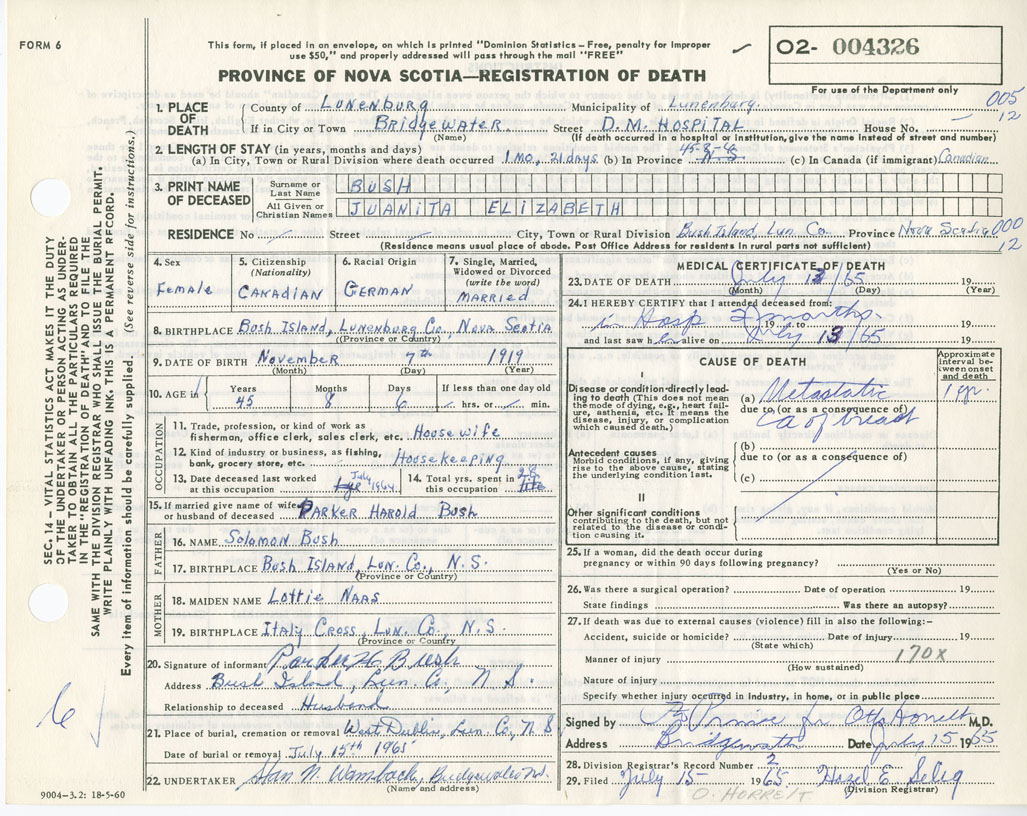 FORM 6
This form, if placed in an envelope, on which is printed "Dominion Statistics – Free, penalty for improper
use $50," and properly addressed will pass through the mail "FREE"
O2- 004326
PROVINCE OF NOVA SCOTIA—REGISTRATION OF DEATH
For use of the Department only
005
12
1. PLACE OF DEATH
County of Lunenburg Municipality of Lunenburg
If in City or Town Bridgewater Street D.M. Hospital House No.
(Name) (If death occurred in a hospital or institution, give the name instead of street and number)
2. LENGTH OF STAY (in years, months and days)
(a) In City, Town or Rural Division where death occurred 1 mo., 21 days (b) In Province 45-8-6 N S (c) In Canada (if immigrant) Canadian
3. PRINT NAME OF DECEASED
Surname or Last Name BUSH
All Given or Christian Names JUANITA ELIZABETH
RESIDENCE No Street City, Town or Rural Division Bush Island, Lun. Co. Province Nova Scotia 000
12
(Residence means usual place of abode. Post Office Address for residents in rural parts not sufficient)
4. Sex Female
5. Citizenship (Nationality) Canadian
6. Racial Origin German
7. Single, Married, Widowed or Divorced (write the word) Married
8. BIRTHPLACE Bush Island, Lunenburg Co. Nova Scotia
(Province or Country)
9. DATE OF BIRTH November 7th 1919
(Month) (Day) (Year)
10. AGE in Years 45 Months 8 Days 6 If less than one day old hrs. or min.
OCCUPATION
11. Trade, profession, or kind of work as
fisherman, office clerk, sales clerk, etc. Housewife
12. Kind of industry or business, as fishing,
bank, grocery store, etc. Housekeeping
13. Date deceased last worked at this occupation July 1964
14. Total yrs. spent in this occupation 28 life
15. If married give name of wife or husband of deceased Parker Harold Bush
FATHER
16. NAME Solomon Bush
17. BIRTHPLACE Bush Island, Lun. Co., N.S.
(Province or Country)
MOTHER
18. MAIDEN NAME Lottie Naas
19. BIRTHPLACE Italy Cross, Lun. Co., N.S.
(Province or Country)
20. Signature of informant Parker H Bush
Address Bush Island, Lun. Co., N S.
Relationship to deceased Husband
21. Place of burial, cremation or removal West Dublin, Lun. Co., N S
Date of burial or removal July 15th 1965
22. UNDERTAKER Bridgewater N.S.
(Name and address)
9004-3.2: 18-5-60
MEDICAL CERTIFICATE OF DEATH
23. DATE OF DEATH July 13 /65
(Month) (Day) (Year)
24. I HEREBY CERTIFY that I attended deceased from:
in Hosp 2 months
19 to 19
and last saw h alive on July 13/65 19
CAUSE OF DEATH
Approximate interval between onset and death
I
Disease or condition directly leading to death (This does not mean the mode of dying, e.g., heart failure, asthenia, etc. It means the disease, injury, or complication which caused death.)
(a) Metastatic 1 yr.
due to (or as a consequence of)
Ca of breast
Antecedent causes
Morbid conditions, if any, giving rise to the above cause, stating the underlying condition last.
(b)
due to (or as a consequence of)
(c)
II
Other significant conditions
contributing to the death, but not related to the disease or condition causing it.
25. If a woman, did the death occur during
pregnancy or within 90 days following pregnancy?
(Yes or No)
26. Was there a surgical operation? Date of operation 19
State findings Was there an autopsy?
27. If death was due to external causes (violence) fill in also the following:–
Accident, suicide or homicide? Date of injury 19
(State which)
Manner of injury 170X
(How sustained)
Nature of injury
Specify whether injury occurred in industry, in home, or in public place
Signed by M.D.
Address Bridgewater Date July 15 1965
28. Division Registrar's Record Number 2
29. Filed July 15 1965 Hazel E Selig
(Division Registrar)
SEC. 14 – VITAL STATISTICS ACT MAKES IT THE DUTY
OF THE UNDERTAKER OR PERSON ACTING AS UNDER-
TAKER TO OBTAIN ALL THE PARTICULARS REQUIRED
IN THE "REGISTRATION OF DEATH" AND TO FILE THE
SAME WITH THE DIVISION REGISTRAR WHO SHALL ISSUE THE BURIAL PERMIT.
WRITE PLAINLY WITH UNFADING INK. THIS IS A PERMANENT RECORD.
Every item of information should be carefully supplied. (See reverse side for instructions.)